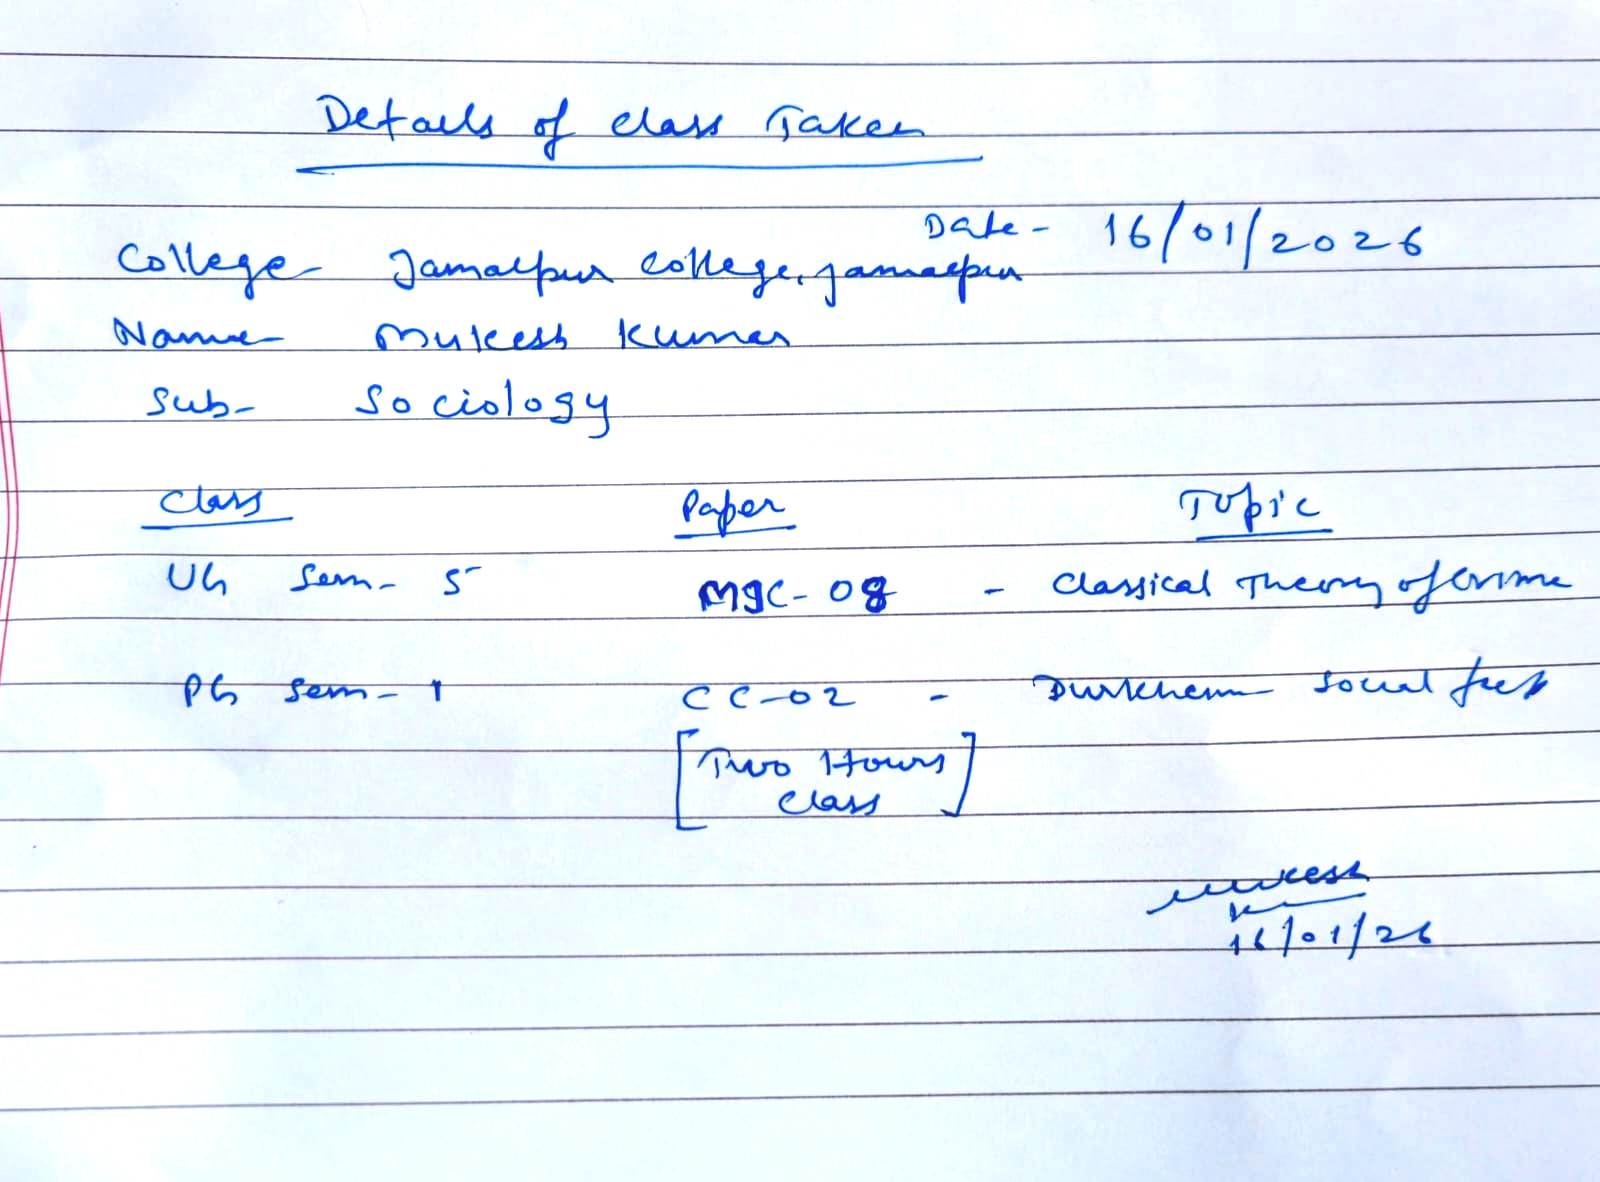 Details of class Taken
Date - 16/01/2026
College - Jamalpur College, Jamalpur
Name - Mukesh Kumar
Sub - Sociology
Class Paper Topic
UG Sem - 5 MJC - 08 - Classical Theory of Crime
PG Sem - 1 CC-02 - Durkheim Social fact
[Two Hours
Class]
Mukesh
16/01/26